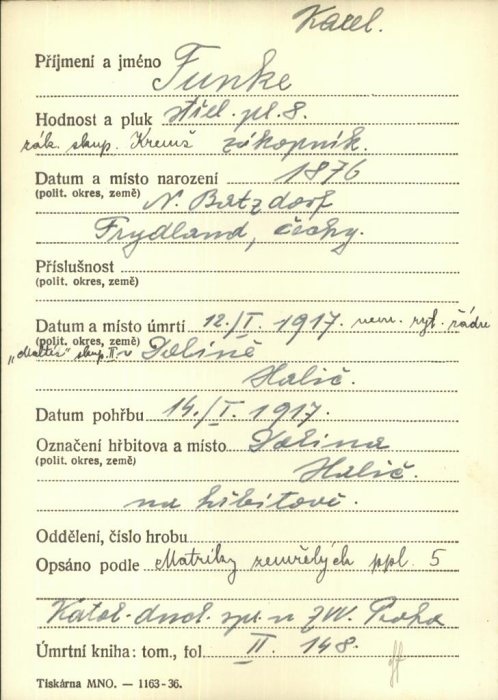 Karel.
Příjmení a jméno Funke
Hodnost a pluk střel. pl. 8.
zák. skup. Krems zákopník.
Datum a místo narození 1876
(polit. okres, země) N. Batzdorf
Frydland, Čechy.
Příslušnost
(polit. okres, země)
Datum a místo úmrtí 12./I. 1917. nem. ryt. řádu
(polit. okres, země)
„Maltes" skup. II v Dolině
Halič.
Datum pohřbu 14./I. 1917.
Označení hřbitova a místo Dolina
(polit. okres, země)
Halič.
na hřbitově.
Oddělení, číslo hrobu
Opsáno podle Matriky zemřelých ppl. 5
Katol. duch. spr. v Praha
Úmrtní kniha: tom., fol. II. 148.
Tiskárna MNO. — 1163-36.